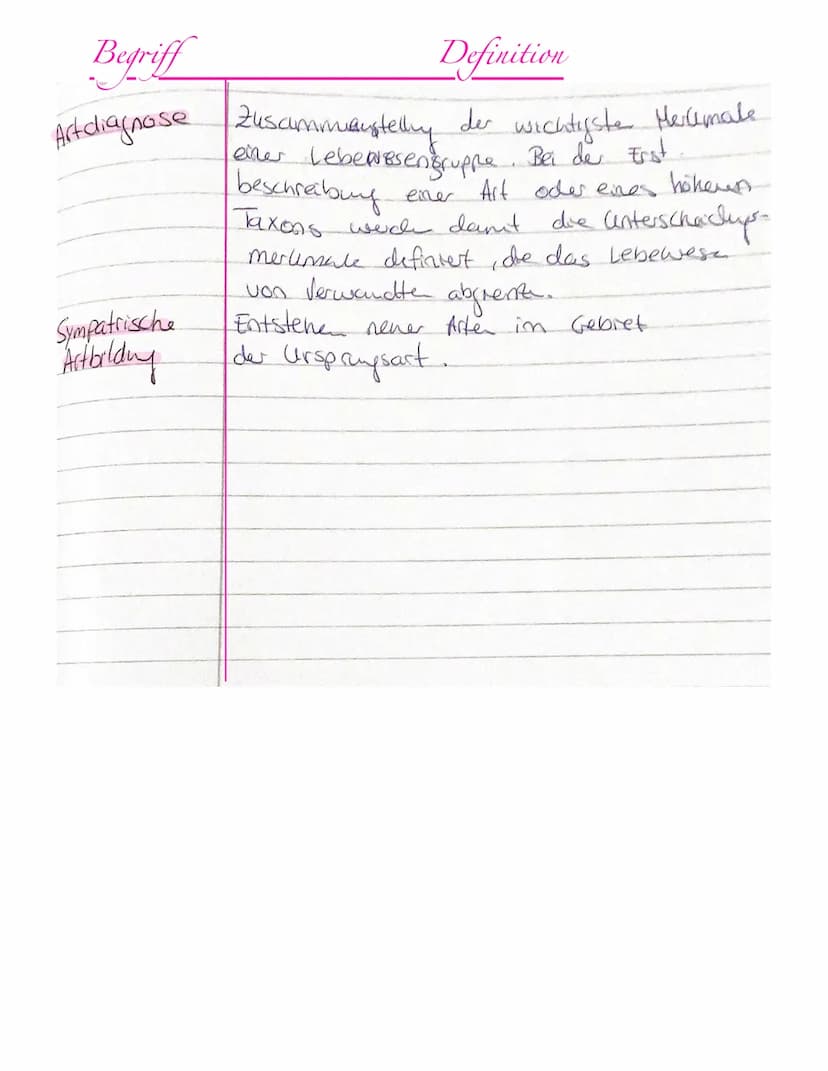 Begriff Definition
Artdiagnose Zusammenstellung der wichtigsten Merkmale
einer Lebewesengruppe. Bei der Erst-
beschreibung einer Art oder eines höheren
Taxons werden damit die Unterscheidungs-
merkmale definiert, die das Lebewesen
von Verwandten abgrenzen.
Sympatrische Entstehen neuer Arten im Gebiet
Artbildung der Ursprungsart.